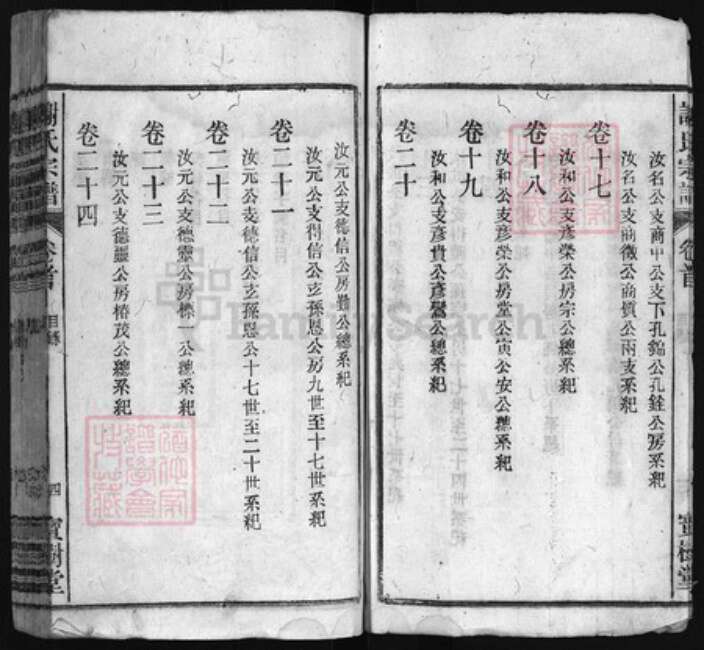 汝名公支商甲公支下孔錦公孔銓公房系紀
汝名公支商徵公商質公兩支系紀
卷十七
汝和公支彥榮公房宗公總系紀
卷十八
汝和公支彥榮公房堂公寅公安公總系紀
卷十九
汝和公支彥貴公彥鸞公總系紀
卷二十
汝元公支德信公房勤公總系紀
汝元公支得信公支孫恩公房九世至十七世系紀
卷二十一
汝元公支德信公支孫恩公十七世至二十世系紀
卷二十二
汝元公支德靈公房 一公總系紀
卷二十三
汝元公支德靈公房椿茂公總系紀
卷二十四
謝氏宗譜
卷首
目錄
四
寶樹堂
FamilySearch